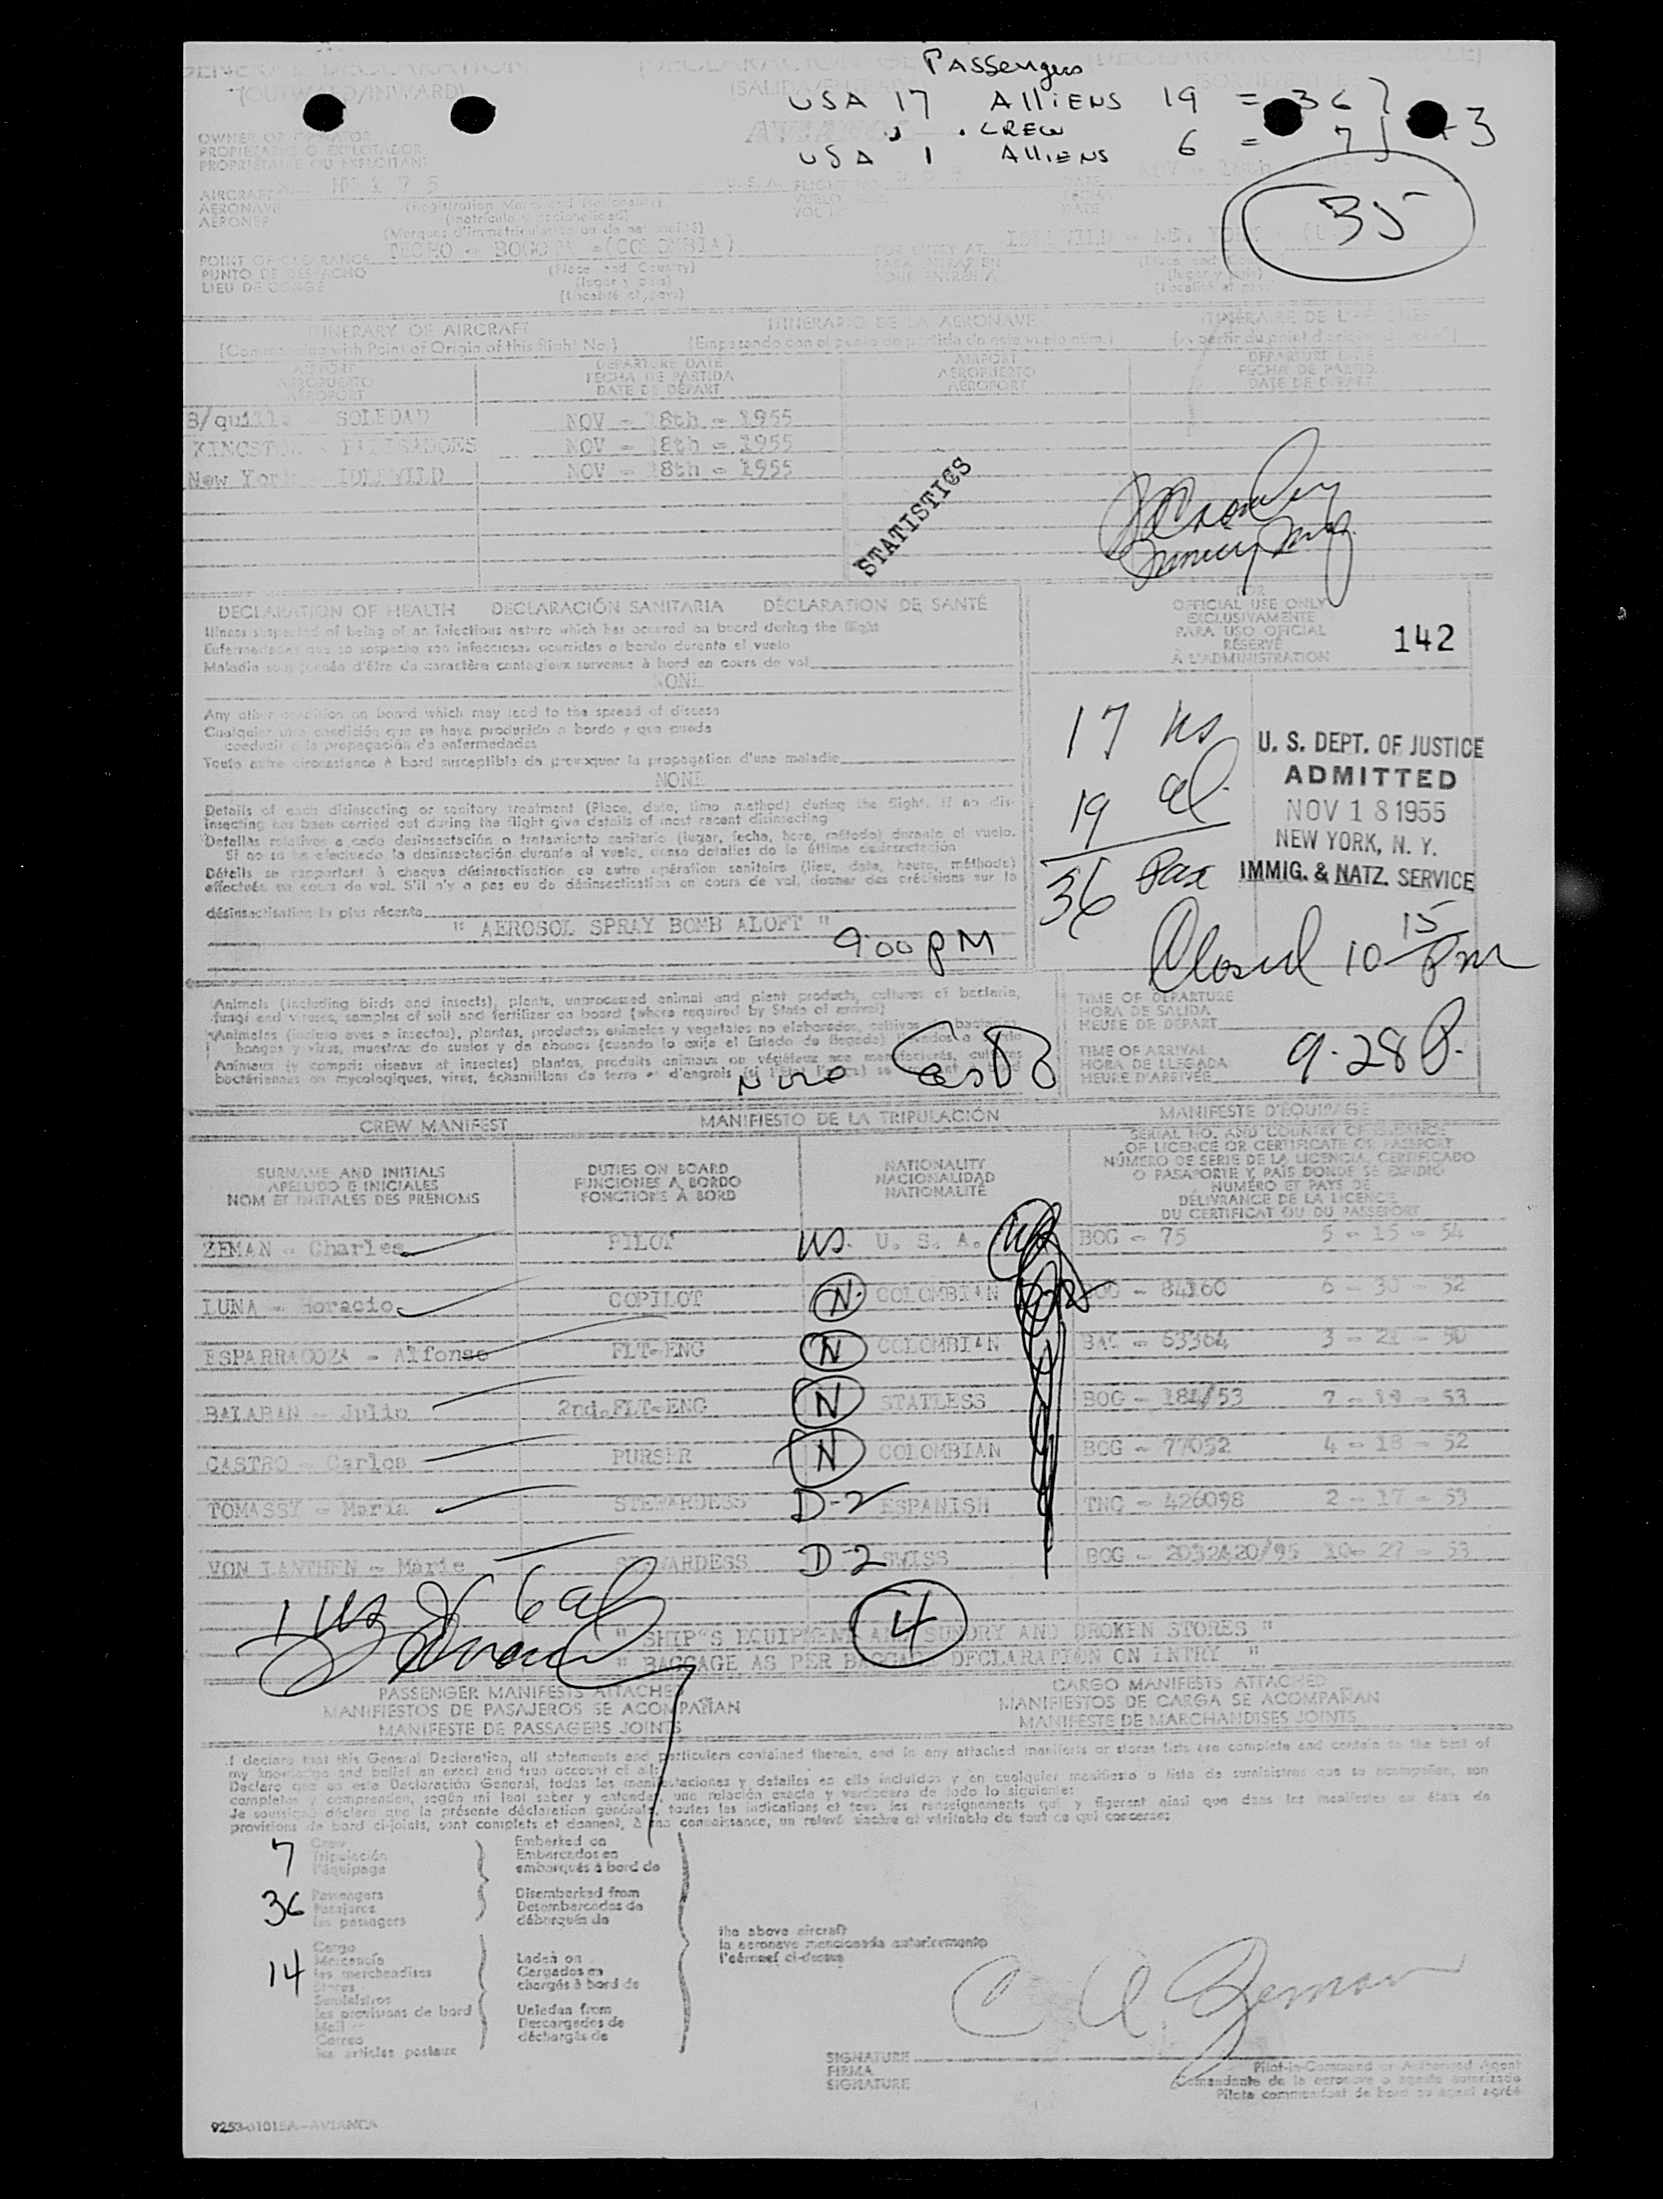 Passengers
GENERAL DECLARATION
(OUTWARD/INWARD)
USA 17 AlliENS 19 = 36
CREW
USA 1 AlliENS 6 = 7
35
OWNER OR OPERATOR
PROPIETARIO O EXPLOTADOR
PROPRIETAIRE OU EXPLOITANT
AVIANCA
AIRCRAFT
AERONAVE
AÉRONEF
POINT OF CLEARANCE
PUNTO DE DESPACHO
LIEU DE CONGÉ
TECHO - BOGOTA - (COLOMBIA)
(Place and Country)
(lugar y país)
ITINERARY OF AIRCRAFT ITINERARIO DE LA AERONAVE
(Commencing with Point of Origin of this flight No.) (Empezando con el punto de partida de este vuelo núm.)
AIRPORT
AEROPUERTO
AÉROPORT
DEPARTURE DATE
FECHA DE PARTIDA
DATE DE DÉPART
AIRPORT
AEROPUERTO
AÉROPORT
DEPARTURE DATE
FECHA DE PARTIDA
DATE DE DÉPART
B/quilla SOLEDAD NOV - 18th - 1955
KINGSTON - PALISADOES NOV - 18th - 1955
New York IDLEWILD NOV - 18th - 1955
STATISTICS
DECLARATION OF HEALTH DECLARACIÓN SANITARIA DÉCLARATION DE SANTÉ
Illness suspected of being of an infectious nature which has occured on board during the flight
Enfermedades que se sospecha son infecciosas ocurridas a bordo durante el vuelo
Maladie soupçonnée d'être de caractère contagieux survenue à bord en cours de vol
NONE
Any other condition on board which may lead to the spread of disease
Cualquier otra condición que se haya producido a bordo y que pueda
conducir a la propagación de enfermedades
Toute autre circonstance à bord susceptible de provoquer la propagation d'une maladie
NONE
Details of each disinsecting or sanitary treatment (Place, date, time, method) during the flight. If no dis-
insecting has been carried out during the flight give details of most recent disinsecting
Detalles relativos a cada desinsectación o tratamiento sanitario (lugar, fecha, hora, método) durante el vuelo.
Si no se ha efectuado la desinsectación durante el vuelo, dense detalles de la última desinsectación
Détails se rapportant à chaque désinsectisation ou autre opération sanitaire (lieu, date, heure, méthode)
effectuée en cours de vol. S'il n'y a pas eu de désinsectisation en cours de vol, donner des précisions sur la
désinsectisation la plus récente
" AEROSOL SPRAY BOMB ALOFT "
9:00 PM
FOR
OFFICIAL USE ONLY
EXCLUSIVAMENTE
PARA USO OFICIAL
RÉSERVÉ
À L'ADMINISTRATION
142
17 us
19 al.
36 Pax
U. S. DEPT. OF JUSTICE
ADMITTED
NOV 18 1955
NEW YORK, N. Y.
IMMIG. & NATZ. SERVICE
Closed 10 15 Pm
Animals (including birds and insects), plants, unprocessed animal and plant products, cultures of bacteria,
fungi and viruses, samples of soil and fertilizer on board (where required by State of arrival)
TIME OF DEPARTURE
HORA DE SALIDA
HEURE DE DÉPART
TIME OF ARRIVAL
HORA DE LLEGADA
HEURE D'ARRIVÉE
9.28 P.
CREW MANIFEST MANIFIESTO DE LA TRIPULACIÓN MANIFESTE D'ÉQUIPAGE
SURNAME AND INITIALS
APELLIDO E INICIALES
NOM ET INITIALES DES PRENOMS
DUTIES ON BOARD
FUNCIONES A BORDO
FONCTIONS À BORD
NATIONALITY
NACIONALIDAD
NATIONALITÉ
SERIAL NO. AND COUNTRY OF ISSUANCE
OF LICENCE OR CERTIFICATE OR PASSPORT
NÚMERO DE SERIE DE LA LICENCIA, CERTIFICADO
O PASAPORTE Y PAÍS DONDE SE EXPIDIÓ
NUMÉRO ET PAYS DE
DÉLIVRANCE DE LA LICENCE
DU CERTIFICAT OU DU PASSEPORT
ZEMAN - Charles PILOT US. U. S. A. BOG - 75 5 - 15 - 54
LUNA - Horacio COPILOT N COLOMBIAN BOG - 84160 6 - 30 - 52
ESPARRAGOZA - Alfonso FLT-ENG N COLOMBIAN 3 - 21 - 50
BALABAN - Julio 2nd. FLT-ENG N STATLESS BOG - 184/53 7 - 19 - 53
CASTRO - Carlos PURSER N COLOMBIAN BOG - 77052 4 - 18 - 52
TOMASSY - Maria STEWARDESS D-2 ESPANISH TNC - 426098 2 - 17 - 53
VON LANTHEN - Marie STEWARDESS D-2 SWISS BOG - 2032420/95 10- 27 - 53
1 US 6 al
4
" SHIP'S EQUIPMENT AND SUNDRY AND BROKEN STORES "
" BAGGAGE AS PER BAGGAGE DECLARATION ON ENTRY "
PASSENGER MANIFESTS ATTACHED
MANIFIESTOS DE PASAJEROS SE ACOMPAÑAN
MANIFESTE DE PASSAGERS JOINTS
CARGO MANIFESTS ATTACHED
MANIFIESTOS DE CARGA SE ACOMPAÑAN
MANIFESTE DE MARCHANDISES JOINTS
I declare that this General Declaration, all statements and particulars contained therein, and in any attached manifests or stores lists are complete and contain to the best of
my knowledge and belief an exact and true account of all:
Declaro que en esta Declaración General, todas las manifestaciones y detalles en ella incluidos y en cualquier manifiesto o lista de suministros que se acompañan, son
completos y comprenden, según mi leal saber y entender, una relación exacta y verdadera de todo lo siguiente:
Je soussigné déclare que la présente déclaration générale, toutes les indications et tous les renseignements qui y figurent ainsi que dans les manifestes ou états de
provisions de bord ci-joints, sont complets et donnent, à ma connaissance, un relevé sincère et véritable de tout ce qui concerne:
7 Crew
Tripulación
l'équipage
Embarked on
Embarcados en
embarqués à bord de
36 Passengers
Pasajeros
les passagers
Disembarked from
Desembarcados de
débarqués de
14 Cargo
Mercancía
les marchandises
Stores
Suministros
les provisions de bord
Mail
Correo
les articles postaux
Laden on
Cargados en
chargés à bord de
Unladen from
Descargados de
déchargés de
the above aircraft
la aeronave mencionada anteriormente
l'aéronef ci-dessus
C A Zeman
SIGNATURE
FIRMA
SIGNATURE
Pilot-in-Command or Authorized Agent
Comandante de la aeronave o agente autorizado
Pilote commandant de bord ou agent agréé
9253-01015A-AVIANCA